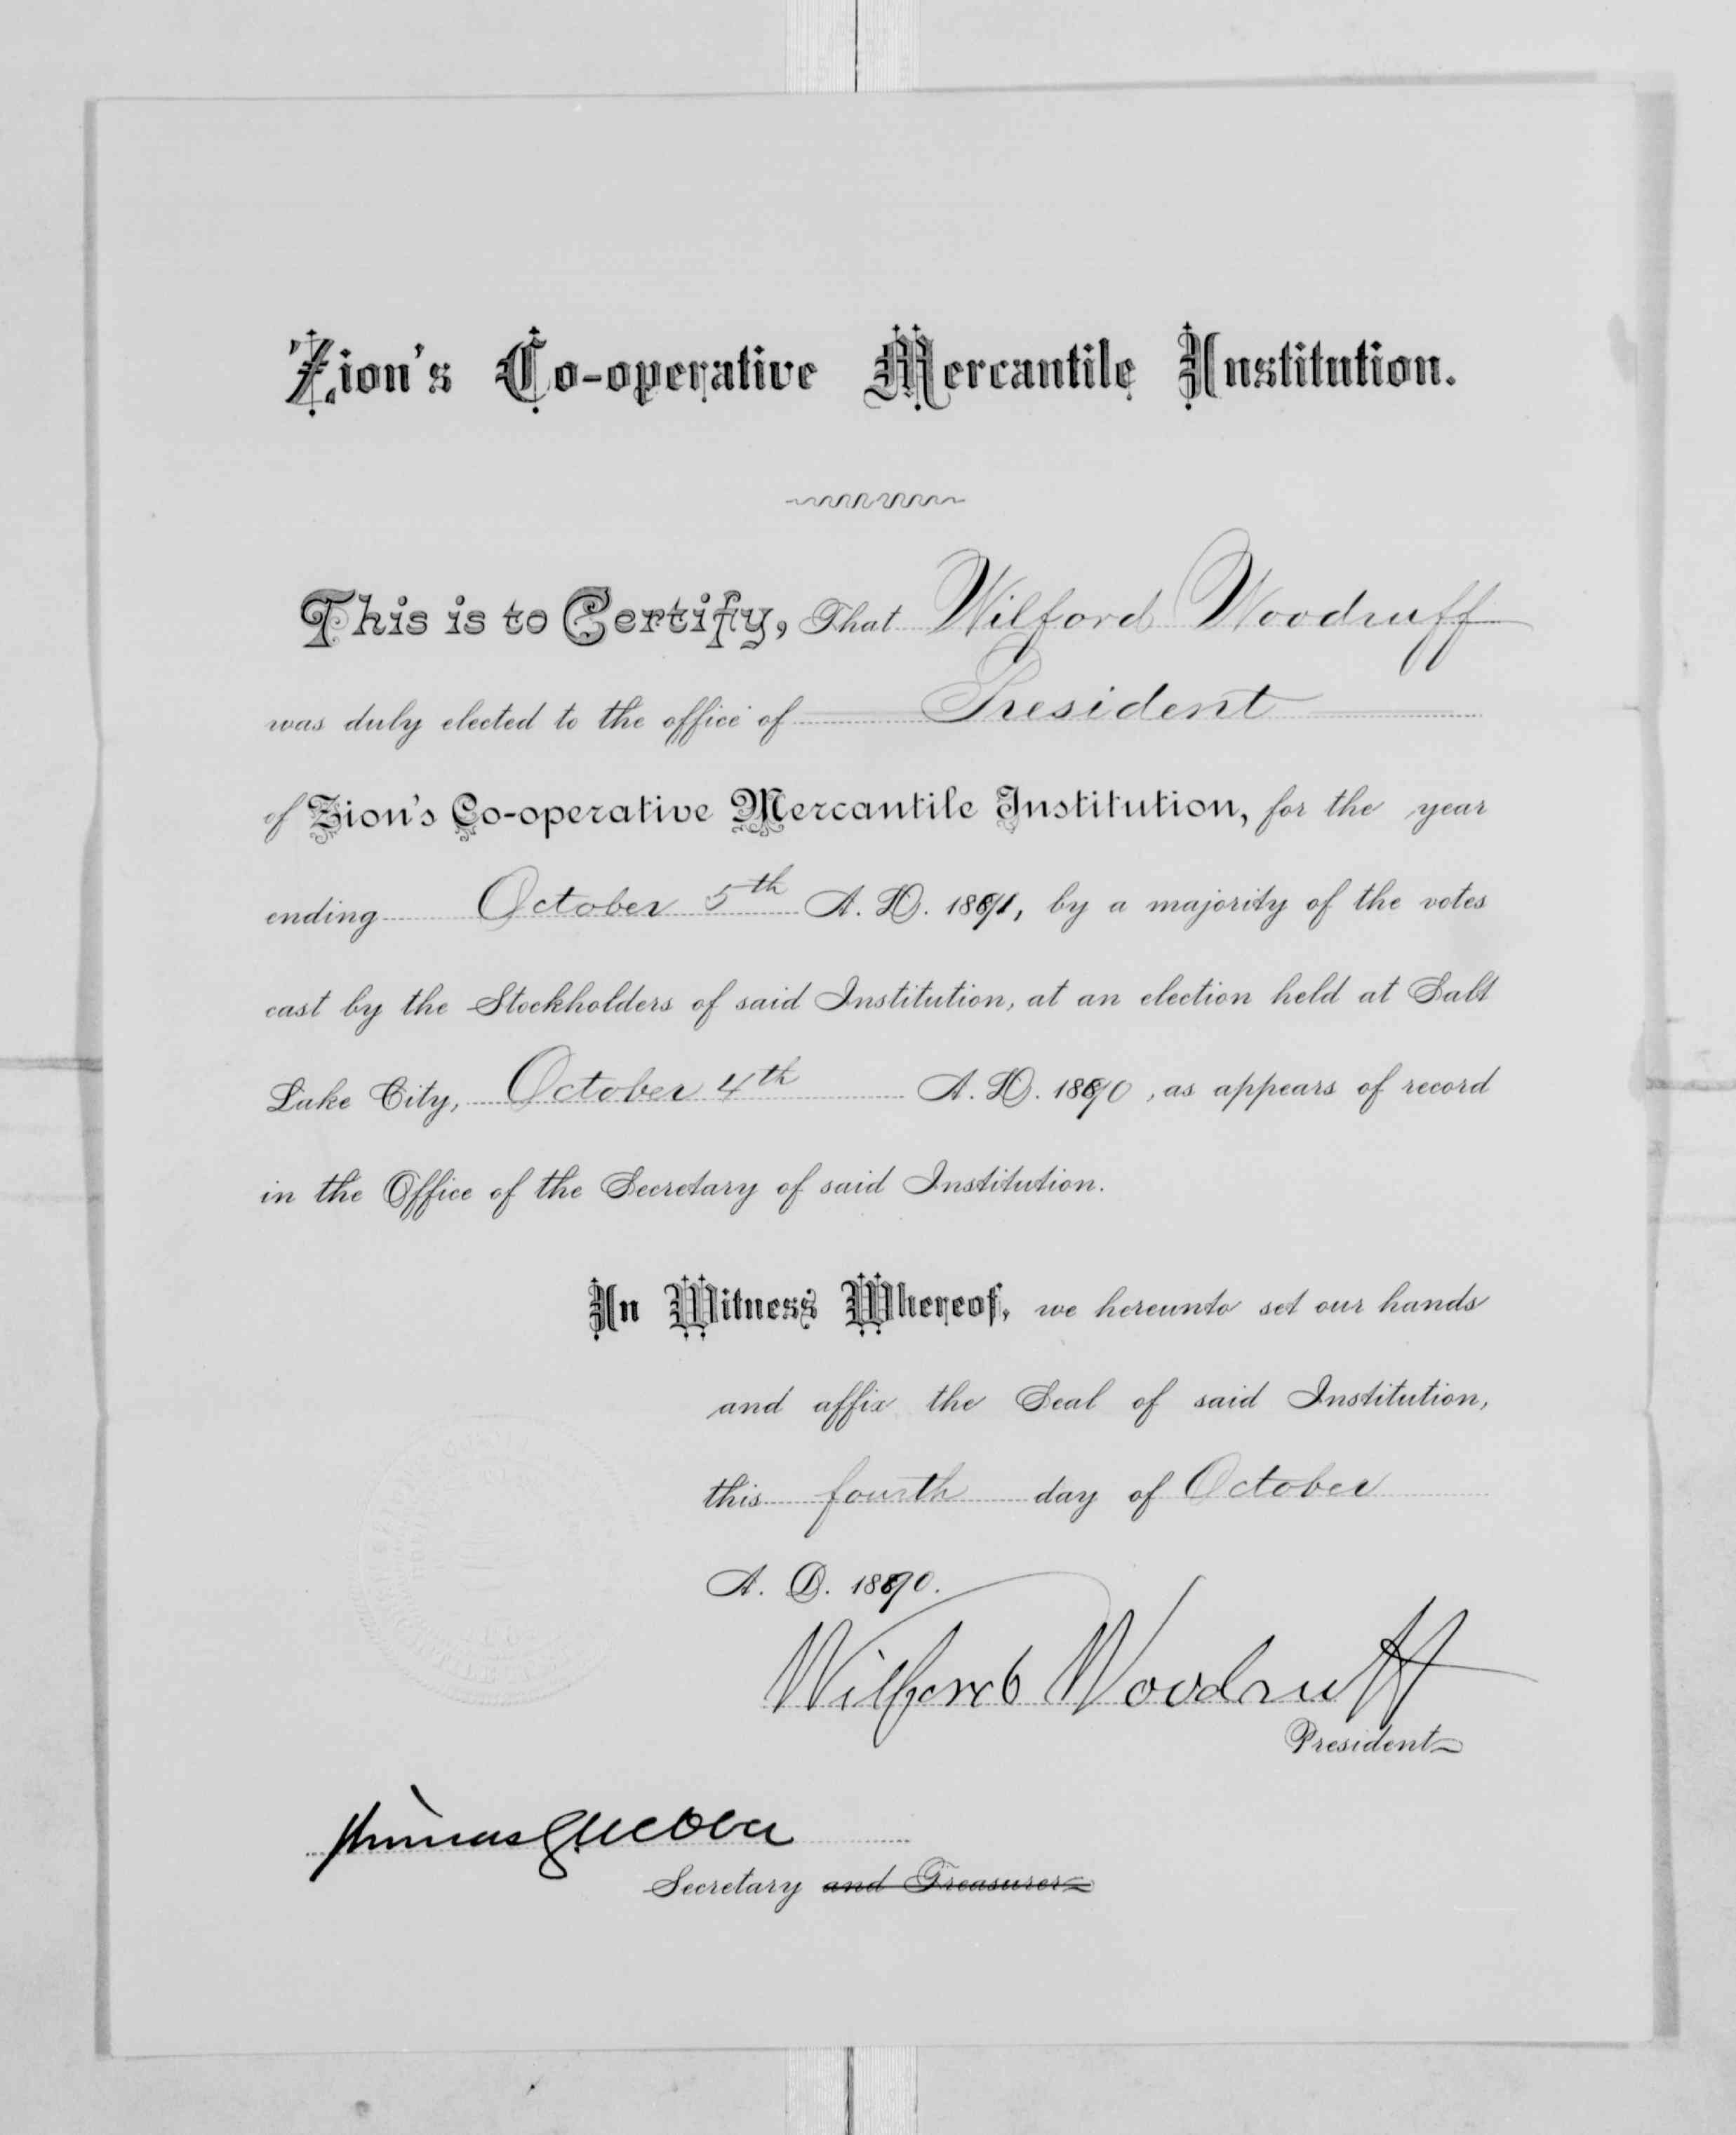 Zion's Co-operative Mercantile Institution.
This is to Certify, That Wilford Woodruff
was duly elected to the office of President
of Zion's Co-operative Mercantile Institution, for the year
ending October 5th A. D. 1891, by a majority of the votes
cast by the Stockholders of said Institution, at an election held at Salt
Lake City, October 4th A. D. 1890, as appears of record
in the Office of the Secretary of said Institution.
In Witness Whereof, we hereunto set our hands
and affix the Seal of said Institution,
this fourth day of October
A. D. 1890.
Wilford Woodruff
President
Thomas G. Webber
Secretary and Treasurer